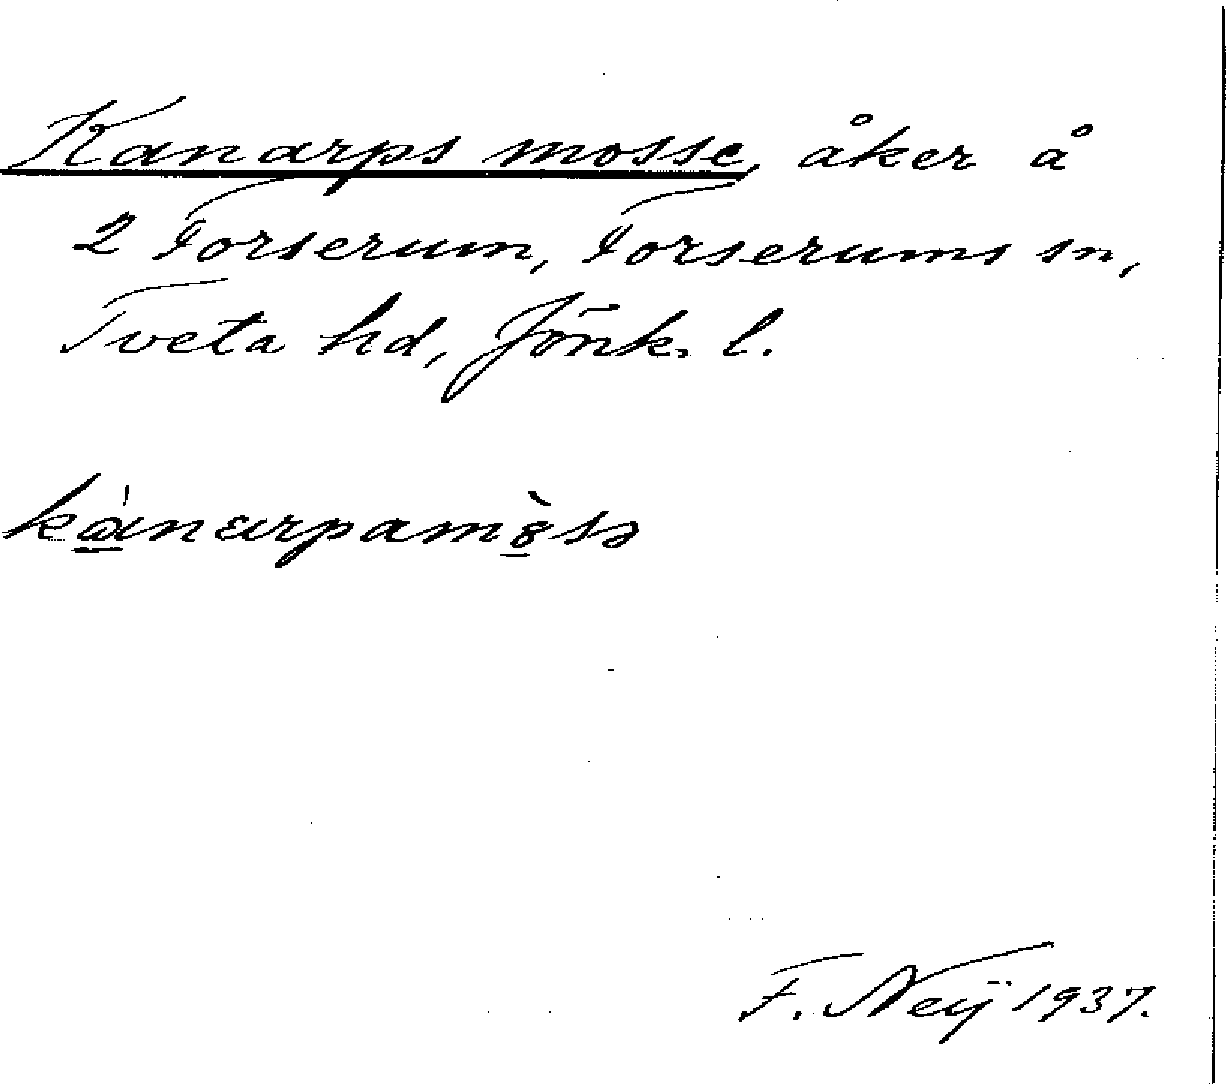 Kanarps mosse, åker å
2 Forserum, Forserums sn,
Tveta hd, Jönk. l.
F. Neij 1937.